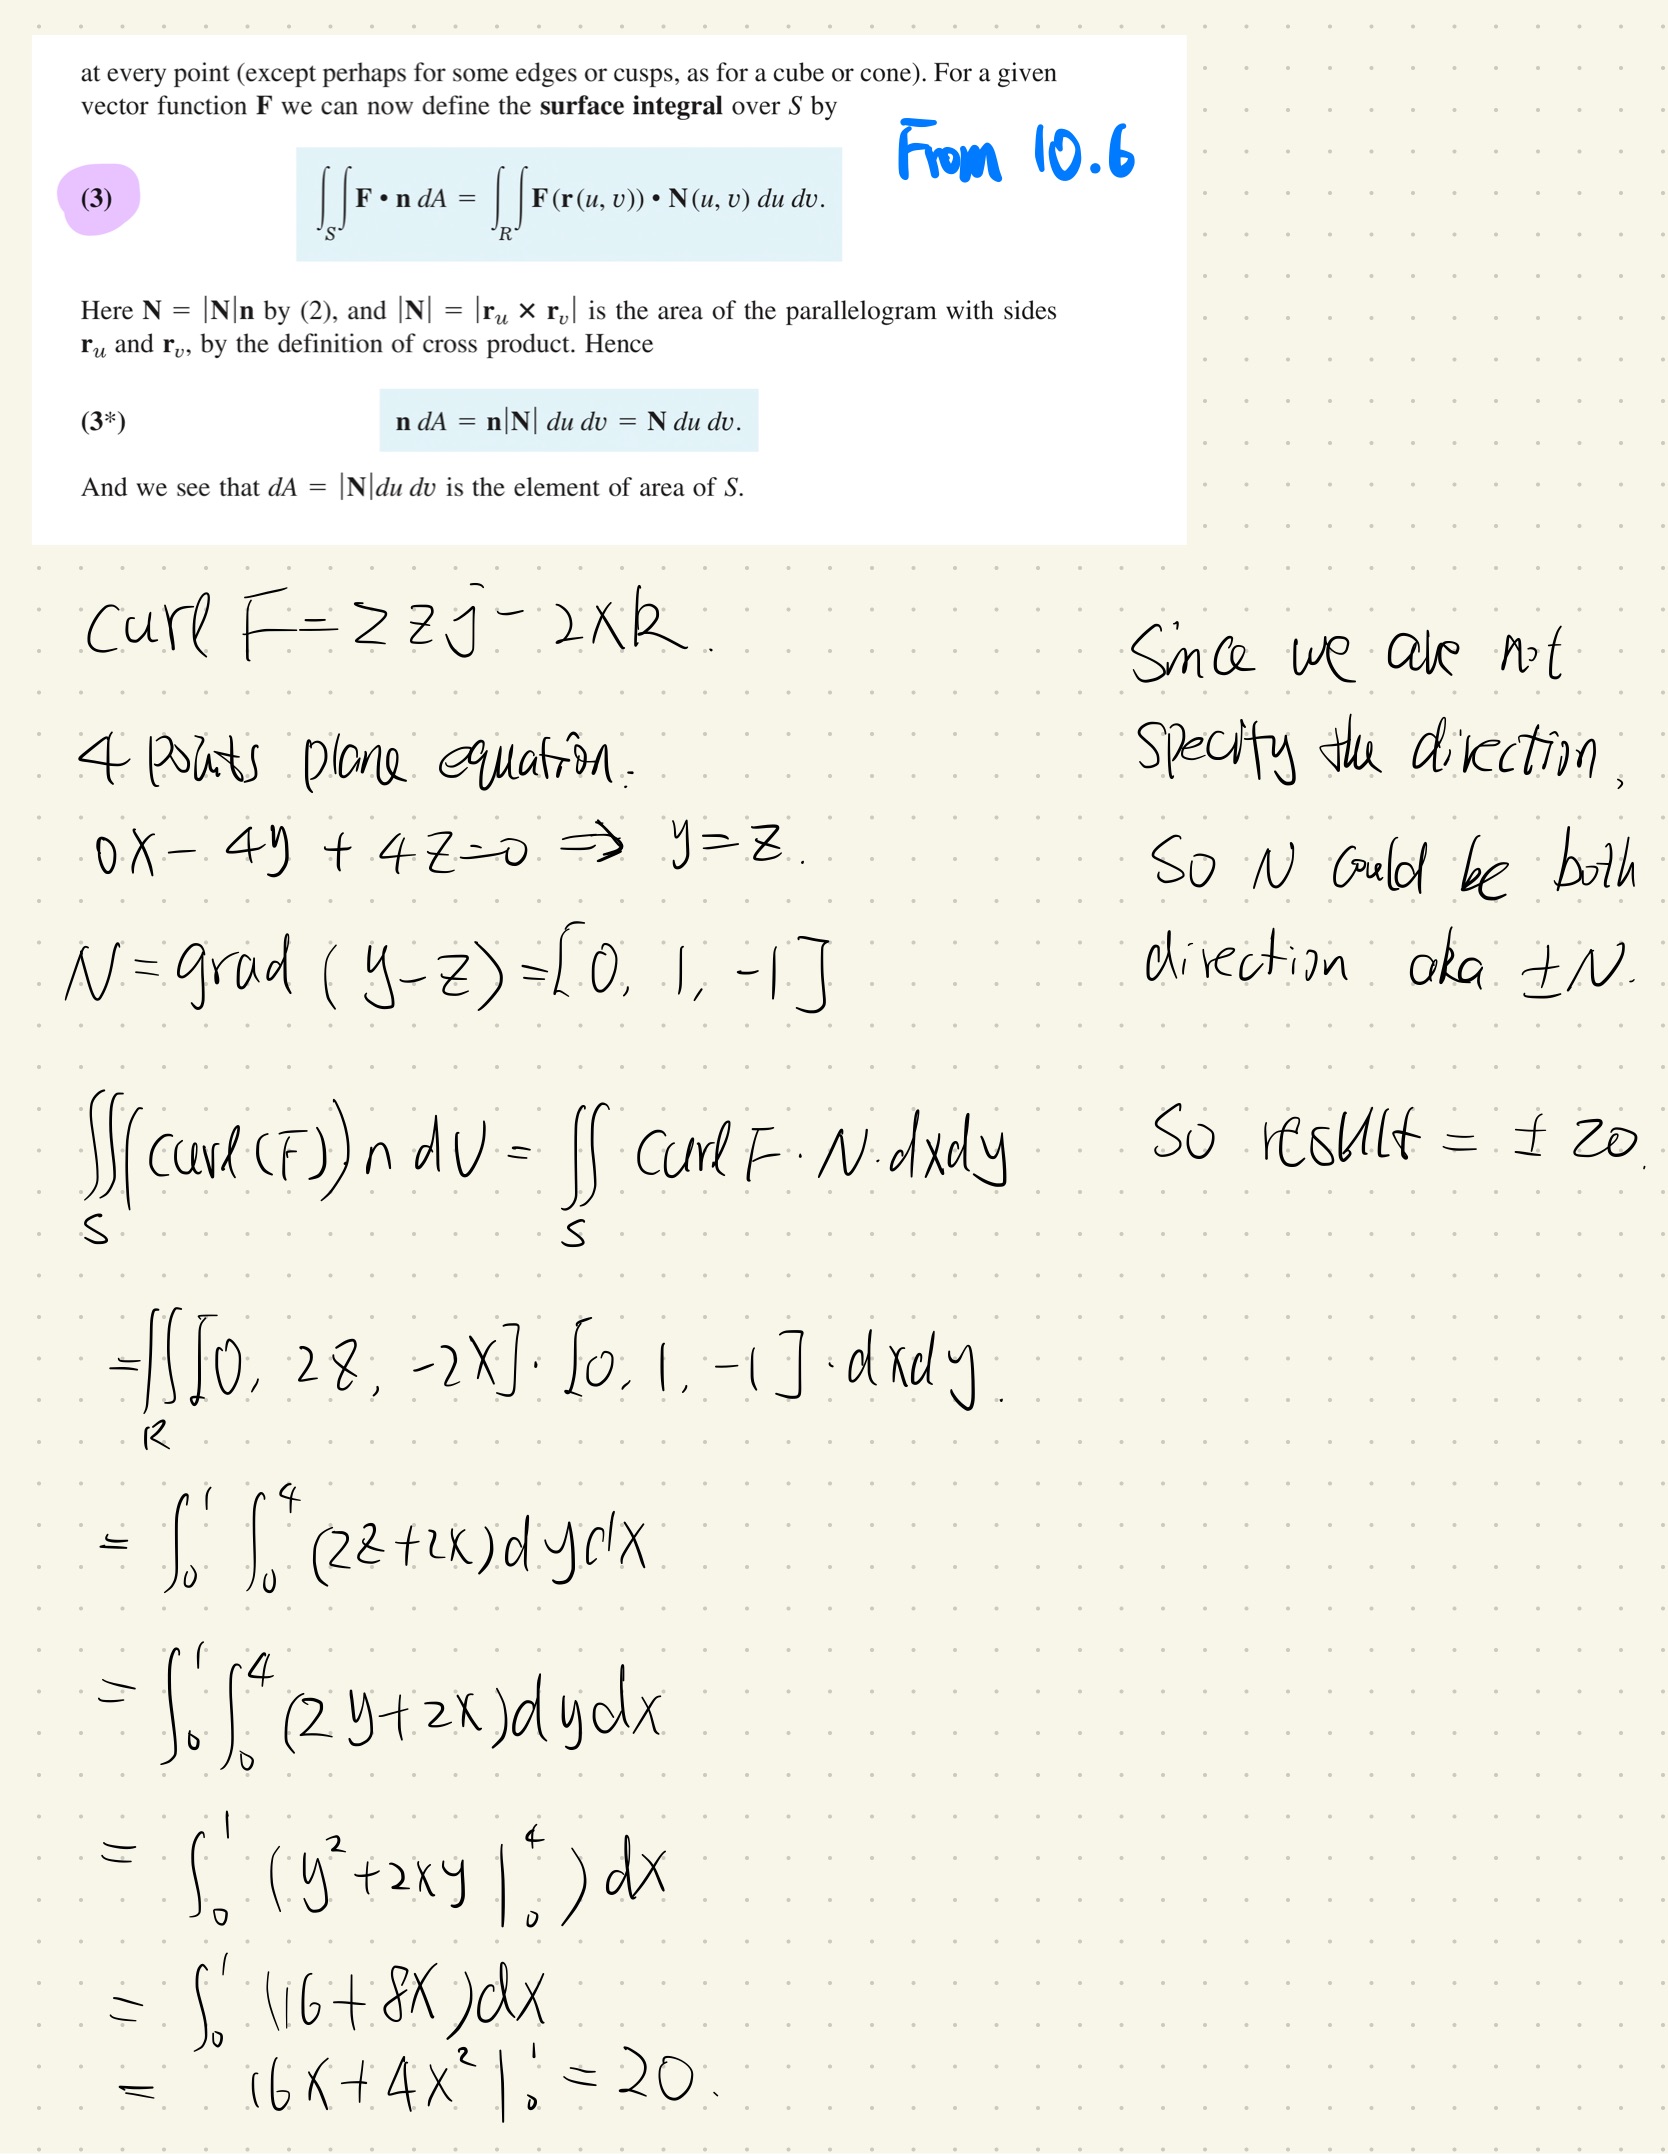 at every point (except perhaps for some edges or cusps, as for a cube or cone). For a given
vector function F we can now define the surface integral over S by
From 10.6
(3) ∬_S F • n dA = ∬_R F(r(u, v)) • N(u, v) du dv.
Here N = |N|n by (2), and |N| = |r_u × r_v| is the area of the parallelogram with sides
r_u and r_v, by the definition of cross product. Hence
(3*) n dA = n|N| du dv = N du dv.
And we see that dA = |N|du dv is the element of area of S.
Curl F = 2zj - 2xk.
4 points plane equation.
0x - 4y + 4z = 0 ⇒ y = z.
N = grad (y - z) = [0, 1, -1]
∭_S (curl(F)) n dV = ∬_S Curl F · N · dxdy
= ∬_R [0, 2z, -2x] · [0, 1, -1] · dxdy.
= ∫_0^1 ∫_0^4 (2z + 2x) dydx
= ∫_0^1 ∫_0^4 (2y + 2x) dydx
= ∫_0^1 (y² + 2xy |_0^4) dx
= ∫_0^1 (16 + 8x) dx
= 16x + 4x² |_0^1 = 20.
Since we are not
specity the direction,
So N could be both
direction aka ±N.
So result = ± 20.